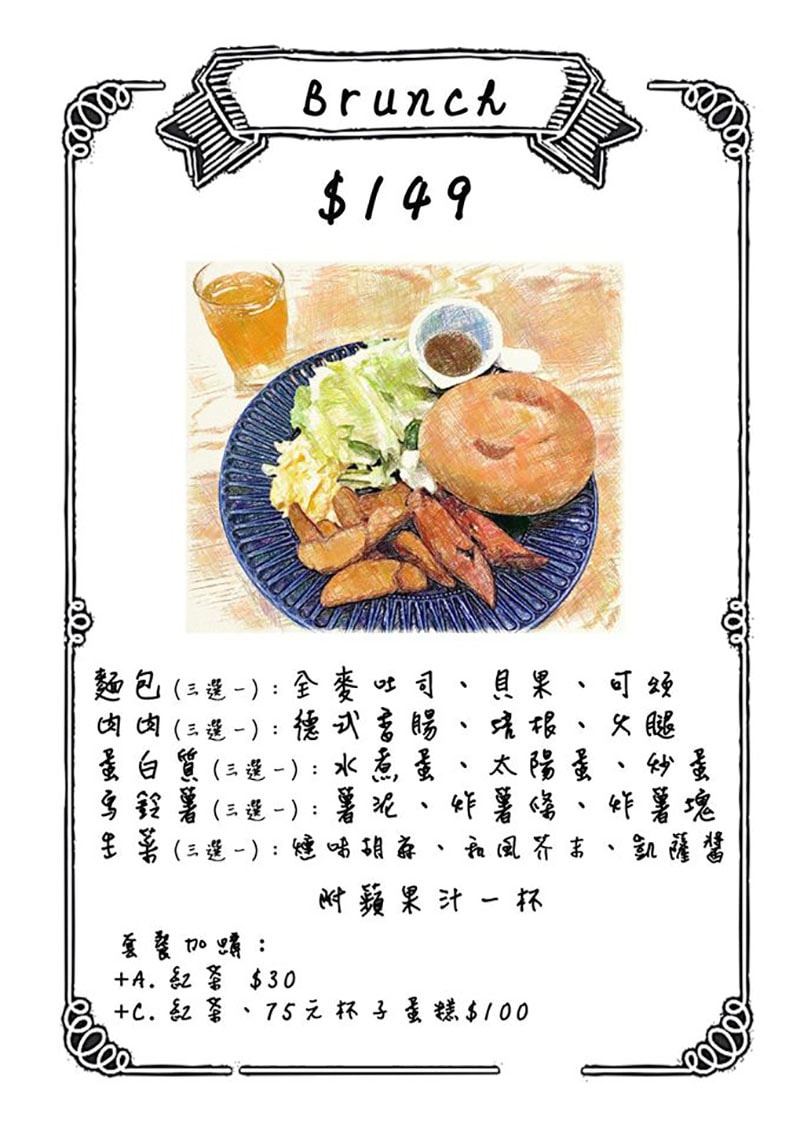 Brunch
$149
麵包(三選一):全麥吐司、貝果、可頌
肉肉(三選一):德式香腸、培根、火腿
蛋白質(三選一):水煮蛋、太陽蛋、炒蛋
馬鈴薯(三選一):薯泥、炸薯條、炸薯塊
生菜(三選一):燻味胡麻、和風芥末、凱薩醬
附蘋果汁一杯
套餐加購:
+A.紅茶 $30
+C.紅茶、75元杯子蛋糕$100